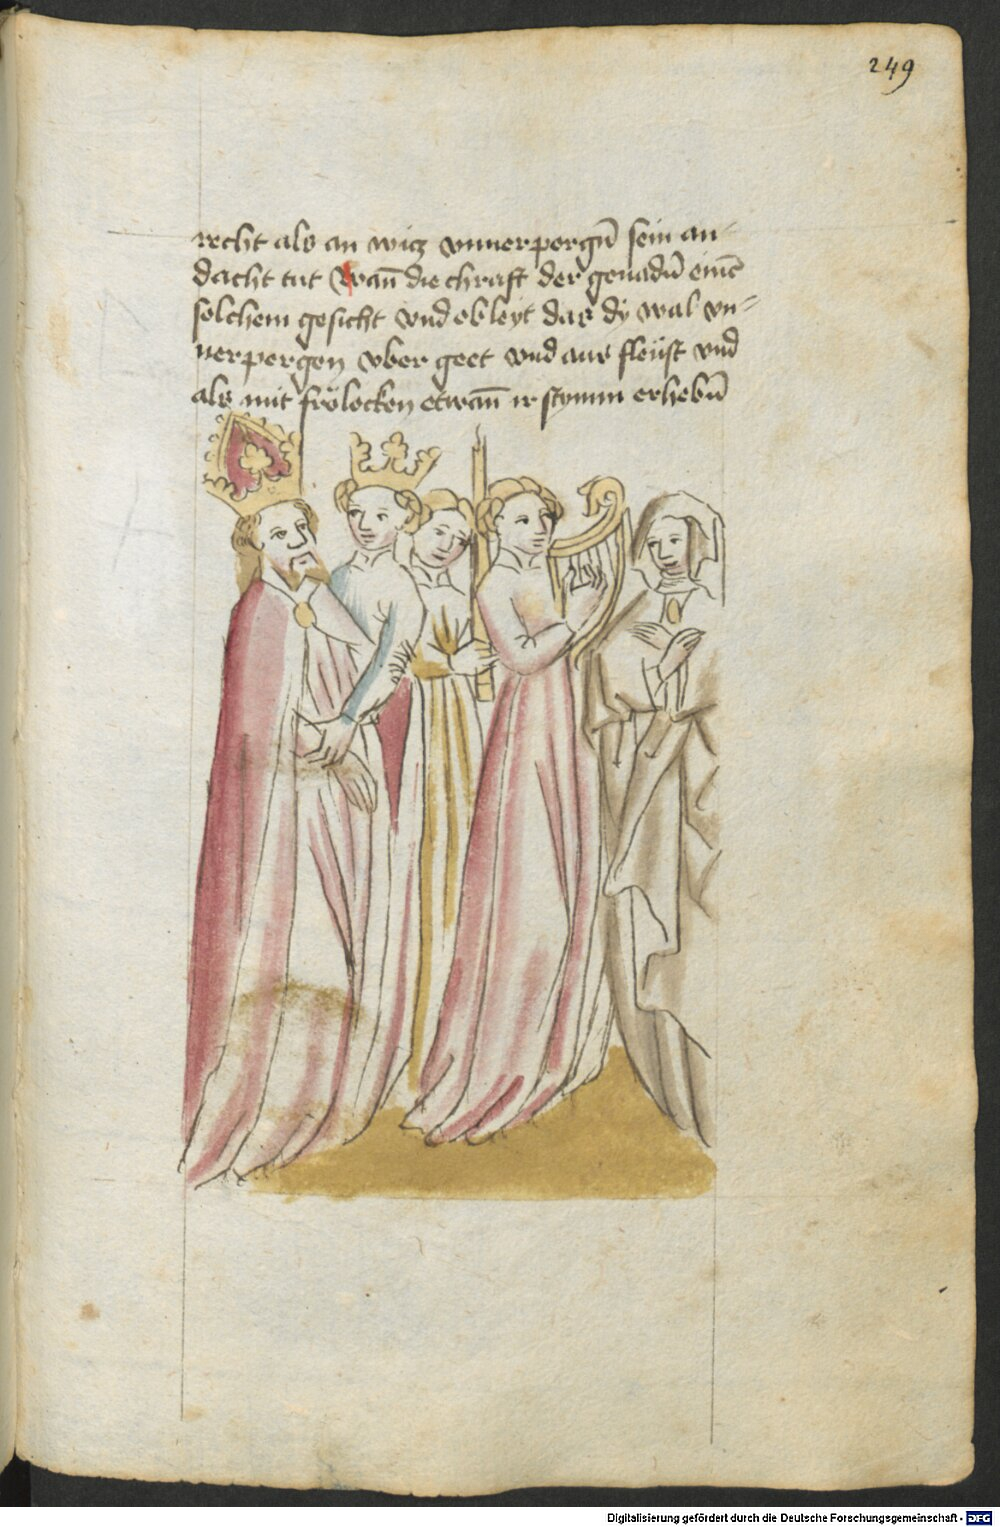 249
recht als an witz vnuerporgn̄ sein an-
dacht tut Wan̄ die chraft der genadn̄ einē
solchem gesicht vnd obleyt das dy wal vn-
uerporgen vber geet vnd aus fleüst vnd
als mit frölocken etwan̄ ir stymm erhebn̄
Digitalisierung gefördert durch die Deutsche Forschungsgemeinschaft - DFG